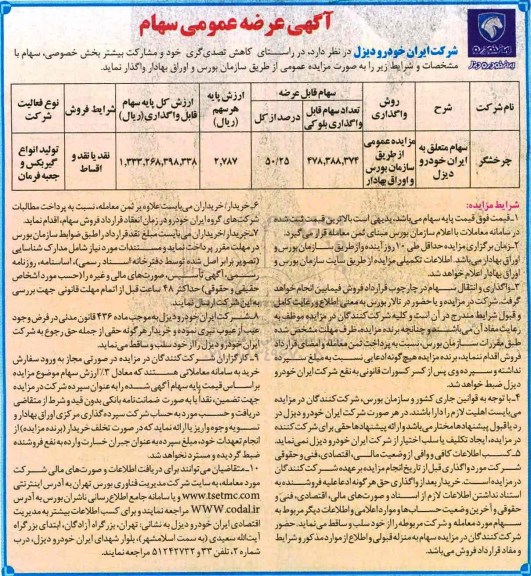 آگهی عرضه عمومی سهام
ایران خودرو دیزل
شرکت ایران خودرو دیزل در نظر دارد، در راستای کاهش تصدی‌گری خود و مشارکت بیشتر بخش خصوصی، سهام با
مشخصات و شرایط زیر را به صورت مزایده عمومی از طریق سازمان بورس و اوراق بهادار واگذار نماید.
نام شرکت
شرح
روش واگذاری
سهام قابل عرضه
تعداد سهام قابل واگذاری بلوکی
درصد از کل
ارزش پایه هر سهم (ریال)
ارزش کل پایه سهام قابل واگذاری (ریال)
شرایط فروش
نوع فعالیت شرکت
چرخشگر
سهام متعلق به ایران خودرو دیزل
مزایده عمومی از طریق سازمان بورس و اوراق بهادار
۴۷۸,۳۸۸,۳۷۴
۵۰/۲۵
۲,۷۸۷
۱,۳۳۳,۲۶۸,۳۹۸,۳۳۸
نقد یا نقد و اقساط
تولید انواع گیربکس و جعبه فرمان
شرایط مزایده:
۱-قیمت فوق قیمت پایه سهام می‌باشد، بدیهی است بالاترین قیمت ثبت شده
در سامانه معاملات با اعلام سازمان بورس مبنای ثمن معامله قرار می‌گیرد.
۲-زمان برگزاری مزایده حداقل طی ۷۰ روز آینده و از طریق سازمان بورس و
اوراق بهادار می‌باشد. اطلاعات تکمیلی مزایده از طریق سایت سازمان بورس و
اوراق بهادار اعلام خواهد شد.
۳-واگذاری و انتقال سهام در چارچوب قرارداد فروش فیمابین انجام خواهد
گرفت. شرکت در مزایده و یا حضور در تالار بورس به معنی اطلاع و رعایت کامل
و قبول شرایط مندرج در آن است و کلیه شرکت‌کنندگان در مزایده موظف به
رعایت مفاد آن می‌باشند و چنانچه برنده مزایده، ظرف مهلت مشخص شده
طبق مقررات سازمان بورس، نسبت به پرداخت ثمن معامله و امضای قرارداد
فروش اقدام ننماید، برنده مزایده هیچ‌گونه ادعایی نسبت به مبلغ سپرده
نداشته و سپرده وی پس از کسر کسورات قانونی به نفع شرکت ایران خودرو
دیزل ضبط خواهد شد.
۴-با توجه به قوانین جاری کشور و سازمان بورس، شرکت‌کنندگان در مزایده
می‌بایست اهلیت لازم را دارا باشند. در هر صورت شرکت ایران خودرو دیزل در
رد یا قبول پیشنهادها مختار می‌باشد و ارائه پیشنهادها حقی برای شرکت کننده
در مزایده، ایجاد تکلیف یا سلب اختیار از شرکت ایران خودرو دیزل نمی‌نماید.
۵-کسب اطلاعات کافی و وافی از وضعیت مالی، اقتصادی، فنی و حقوقی
شرکت مورد واگذاری قبل از تاریخ انجام مزایده بر عهده شرکت کنندگان
در مزایده است. خریدار بعد از واگذاری حق هرگونه ادعا علیه فروشنده به
استناد نداشتن اطلاعات لازم از اسناد و صورت‌های مالی، اقتصادی، فنی و
حقوقی و آخرین وضعیت حساب‌ها و موارد اعلامی و اطلاعات دیگر مربوط به
سهام مورد معامله و شرکت مربوطه را از خود سلب و ساقط می‌نماید. حضور
شرکت کنندگان در مزایده سهام به منزله قبولی و اطلاع از موارد مذکور و شرایط
و مفاد قرارداد فروش می‌باشد.
۶-خریدار/ خریداران می‌بایست علاوه بر ثمن معامله، نسبت به پرداخت مطالبات
شرکت‌های گروه ایران خودرو در زمان انعقاد قرارداد فروش سهام، اقدام نماید.
۷-خریدار/ خریداران می‌بایست مبلغ نقد قرارداد را طبق ضوابط سازمان بورس
در مهلت مقرر پرداخت نماید و مستندات مورد نیاز شامل مدارک شناسایی
(تصویر برابر اصل شده توسط دفترخانه اسناد رسمی)، اساسنامه، روزنامه
رسمی، آگهی تأسیس، صورت‌های مالی و غیره را (حسب مورد اشخاص
حقیقی و حقوقی) حداکثر ۴۸ ساعت قبل از اتمام مهلت قانونی جهت بررسی
به این شرکت ارسال نمایند.
۸-شرکت ایران خودرو دیزل به موجب ماده ۴۳۶ قانون مدنی در فرض وجود
عیب از عیوب تبری نموده و خریدار هرگونه حقی از جمله حق رجوع به شرکت
ایران خودرو دیزل را از خود سلب و ساقط می‌نماید.
۹-کارگزاران شرکت‌کنندگان در مزایده در صورتی مجاز به ورود سفارش
خرید به سامانه معاملاتی هستند که معادل ۳٪ ارزش سهام موضوع مزایده
بر اساس قیمت پایه سهام آگهی شده را به عنوان سپرده شرکت در مزایده
جهت تضمین، نقداً یا به صورت ضمانت‌نامه بانکی بدون قید و شرط از متقاضی
دریافت و حسب مورد به حساب شرکت سپرده‌گذاری مرکزی اوراق بهادار و
تسویه وجوه واریز یا ارائه نماید که در صورت تخلف خریدار (برنده) مزایده) از
انجام تعهدات خود، مبلغ سپرده به عنوان جبران خسارت وارده به نفع فروشنده
ضبط گردیده و مسترد نخواهد شد.
۱۰-متقاضیان می‌توانند برای دریافت اطلاعات و صورت‌های مالی شرکت
مورد معامله، به سایت شرکت مدیریت فناوری بورس تهران به آدرس اینترنتی
www.tsetmc.com و یا سامانه جامع اطلاع‌رسانی ناشران بورس به آدرس
WWW.codal.ir مراجعه نمایند و برای کسب اطلاعات بیشتر به مدیریت
اقتصادی ایران خودرو دیزل به نشانی: تهران، بزرگراه آزادگان، ابتدای بزرگراه
آیت‌الله سعیدی (به سمت اسلامشهر)، بلوار شهدای ایران خودرو دیزل، درب
شماره ۲، تلفن ۳۳ و ۵۱۲۴۲۷۳۲ مراجعه نمایند.